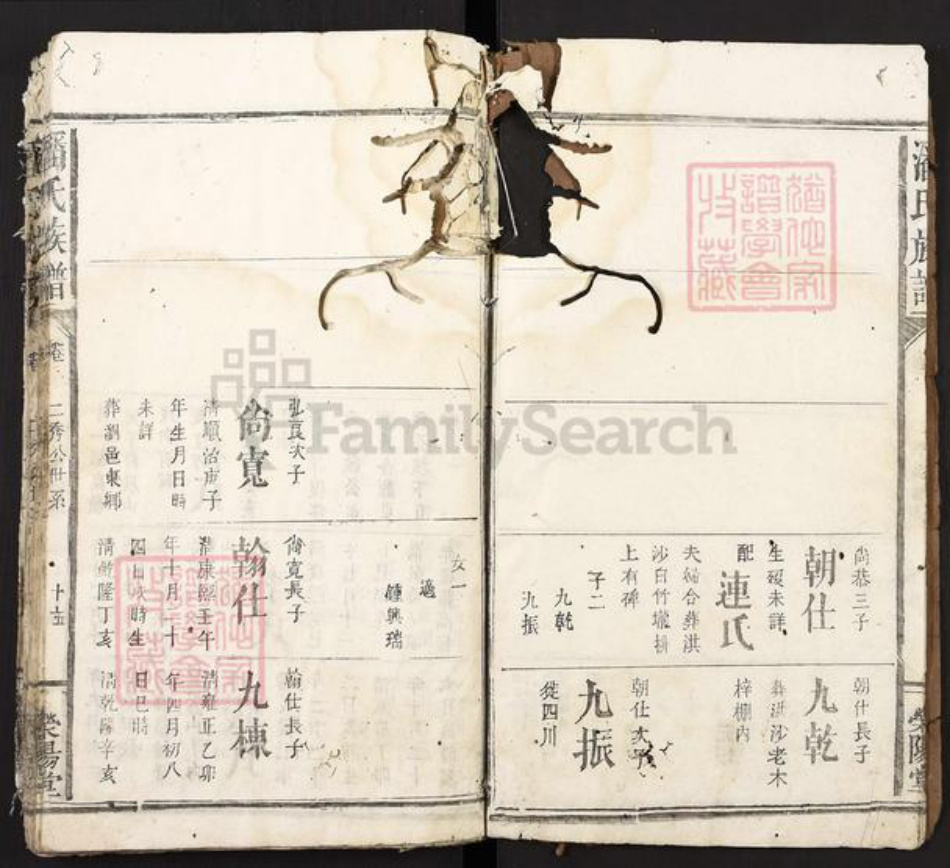 潘氏族譜
榮陽堂
尚恭三子
朝仕
生歿未詳
配
連氏
夫婦合葬洪
沙白竹壠排
上有碑
子二
九乾
九振
朝仕長子
九乾
葬洪沙老木
梓棚內
朝仕次子
九振
徙四川
女一
適
鍾興瑞
弘良次子
尚寬
清順治庚子
年生月日時
未詳
葬瀏邑東鄉
尚寬長子
翰仕
清康熙壬午
年十月二十
四日 時生
清乾隆丁亥
翰仕長子
九棟
清雍正乙卯
年四月初八
日巳時
清乾隆辛亥
潘氏族譜
卷
二秀公世系
榮陽堂
譜學會
收藏
FamilySearch